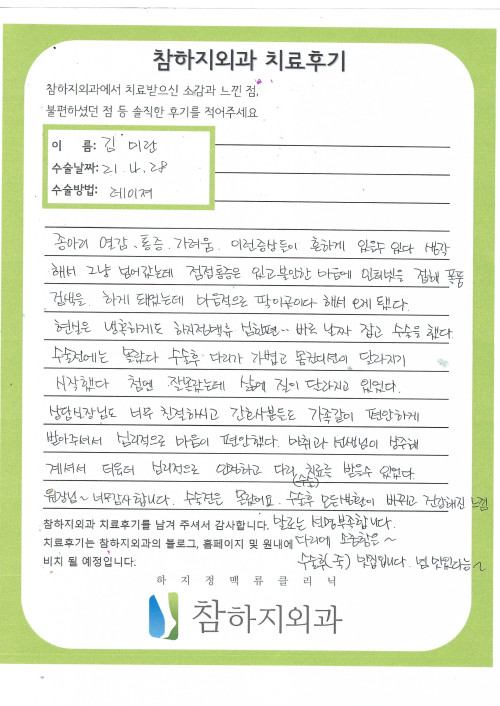 참하지외과 치료후기
참하지외과에서 치료받으신 소감과 느낀 점,
불편하셨던 점 등 솔직한 후기를 적어주세요
이 름: 김 미란
수술날짜: 21. 4. 28
수술방법: 레이져
종아리 열감, 통증, 가려움. 이런증상들이 흔하게 있을수 있다 생각
해서 그냥 넘어갔는데 점점통증은 있고불안한 마음에 인터넷을 접해 폭풍
검색을 하게 돼었는데 마음적으로 딱이곳이다 해서 오게 됐다.
현실은 냉혹하게도 하지정맥류 심한편~ 바로 날짜 잡고 수술을 했다.
수술전에는 몰랐다 수술후 다리가 가볍고 몸컨디션이 달라지기
시작했다 첨엔 잘몰랐는데 삶에 질이 달라지고 있었다.
상담실장님도 너무 친절하시고 간호사분들도 가족같이 편안하게
받아주셔서 심리적으로 마음이 편안했다. 마취과 선생님이 상주해
계셔서 더욱더 심리적으로 안정하고 다리 치료를 받을수 있었다.
(수술)
원장님~ 너무감사합니다. 수술전은 몰랐어요. 수술후 모든생활이 바뀌고 건강해진 느낌
참하지외과 치료후기를 남겨 주셔서 감사합니다. 말로는 설명부족합니다.
치료후기는 참하지외과의 블로그, 홈페이지 및 원내에 다리에 소중함은~
비치 될 예정입니다. 수술후(축) 만점입니다. 넘 만원다는~
하지정맥류클리닉
참하지외과